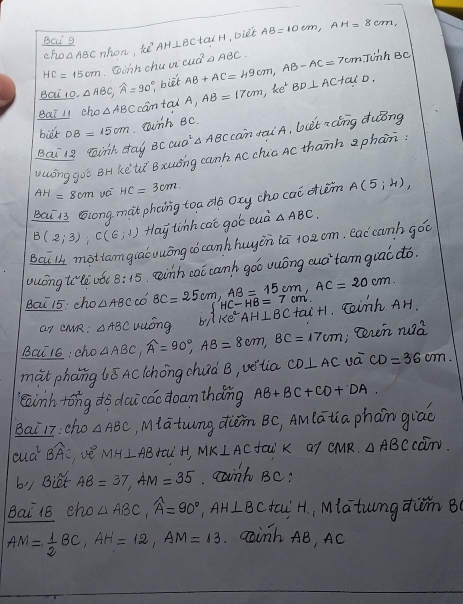 Bài 9
cho △ABC nhọn, kẻ AH⊥BC tại H, biết AB=10cm, AH=8cm,
HC=15cm. Tính chu vi cuả △ABC.
Bài 10. △ABC, Â=90°, biết AB+AC=49cm, AB-AC=7cm Tính BC
Bài 11 cho △ABC cân tại A, AB=17cm, kẻ BD⊥AC tại D,
biết DB=15cm. Tính BC.
Bài 12 Tính đáy BC cuả △ABC cân tại A, biết rằng đường
vuông góc BH kẻ từ B xuống cạnh AC chia AC thành 2 phần:
AH=8cm và HC=3cm.
Bài 13 Trong mặt phẳng tọa độ Oxy cho các điểm A(5;4),
B(2;3), C(6;1) Hãy tính các góc cuả △ABC.
Bài 14 một tam giác vuông có cạnh huyền là 102cm. các cạnh góc
vuông tỉ lệ với 8:15. Tính các cạnh góc vuông cuả tam giác đó.
Bài 15: cho △ABC có BC=25cm, AB=15cm, AC=20cm.
{HC-HB=7cm.
a, CMR: △ABC vuông b, Kẻ AH⊥BC tại H. Tính AH.
Bài 16: cho △ABC, Â=90°, AB=8cm, BC=17cm; Trên nửa
mặt phẳng bờ AC không chứa B, vẽ tia CD⊥AC và CD=36cm.
Tính tổng độ dài các đoạn thẳng AB+BC+CD+DA.
Bài 17: cho △ABC, M là tung điểm BC, AM là tia phân giác
cuả BÂC, vẽ MH⊥AB tại H, MK⊥AC tại K a, CMR. △ABC cân.
b, Biết AB=37, AM=35. Tính BC:
Bài 18 cho △ABC, Â=90°, AH⊥BC tại H., M là tung điểm BC
AM=1/2 BC, AH=12, AM=13. Tính AB, AC